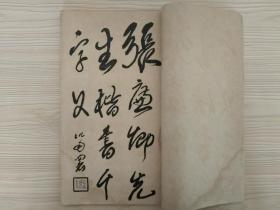 張廉卿先
生楷書千
字文